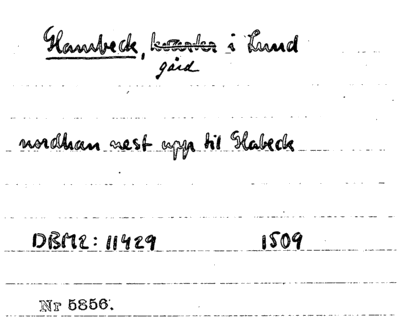 Glambeck, kvarter i Lund
gård
nordhan nest upp til Glabeck
DBM2: 11429 1509
Nr 5856.